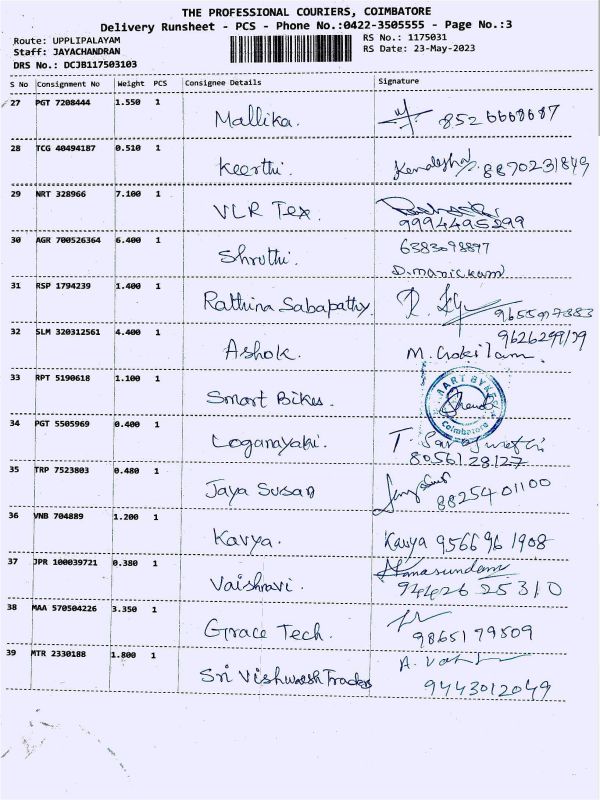 THE PROFESSIONAL COURIERS, COIMBATORE
Delivery Runsheet - PCS - Phone No.:0422-3505555 - Page No.:3
Route: UPPLIPALAYAM RS No.: 1175031
Staff: JAYACHANDRAN RS Date: 23-May-2023
DRS No.: DCJB117503103
S No Consignment No Weight PCS Consignee Details Signature
27 PGT 7208444 1.550 1 Mallika. 8526668687
28 TCG 40494187 0.510 1 Keerthi. 8870231849
29 NRT 328966 7.100 1 VLR Tex. 9994495299
30 AGR 700526364 6.400 1 Shruthi. 6383098897
D.manickam
31 RSP 1794239 1.400 1 Rathina Sabapathy.
32 SLM 320312561 4.400 1 Ashok.
33 RPT 5190618 1.100 1 Smart Bikes. Coimbatore
34 PGT 5505969 0.400 1 Loganayaki.
8056128127
35 TRP 7523803 0.480 1 Jaya Susan 8825401100
36 VNB 704889 1.200 1 Kavya. Kavya 9566961908
37 JPR 100039721 0.380 1 Vaishnavi.
9442625310
38 MAA 570504226 3.350 1 Grace Tech. 9865179509
39 MTR 2330188 1.800 1 Sri Vishwesh Traders
9443012049